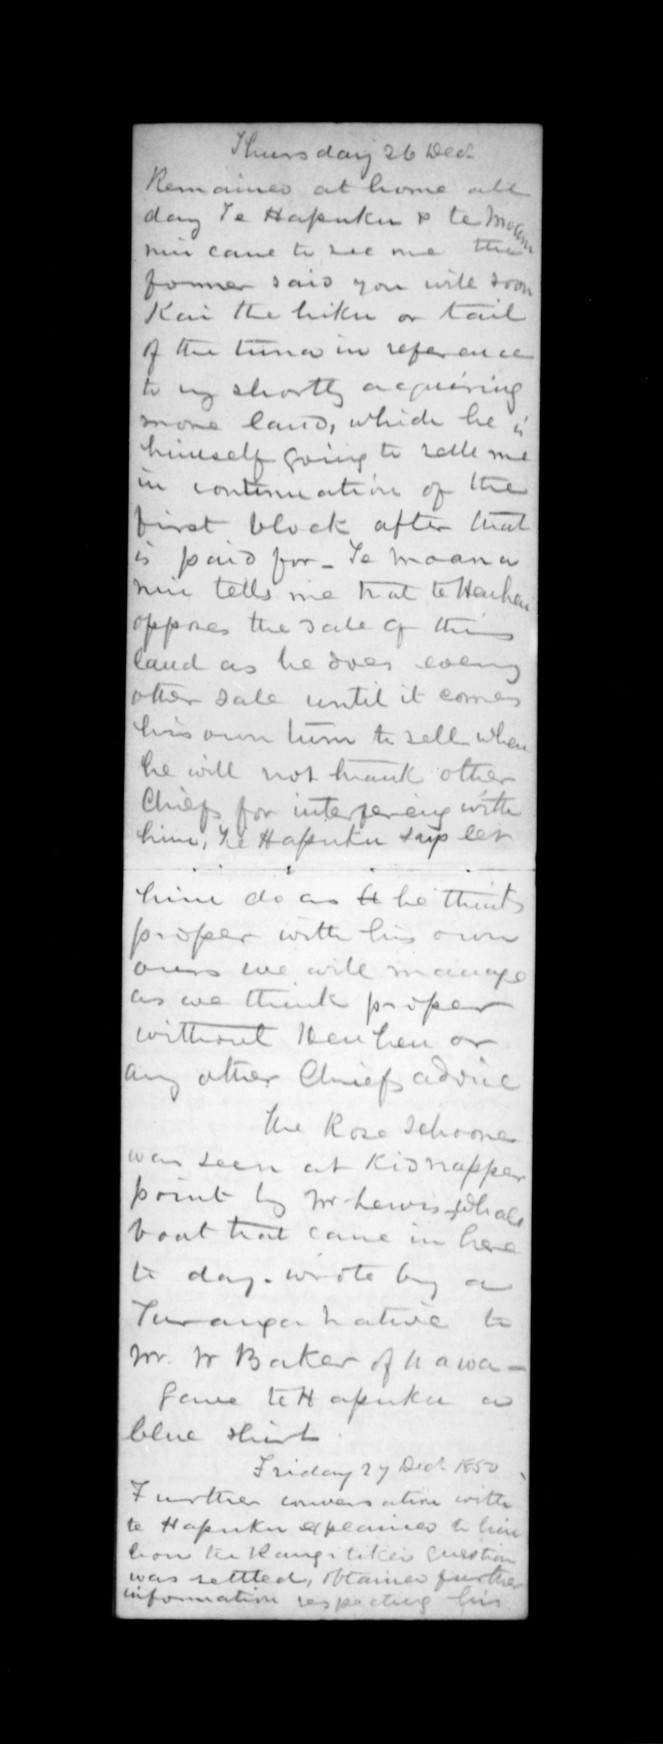 Thursday 26 Dec.
Remained at home all
day Te Hapuku & te Moana
nui came to see me the
former said you will soon
Kai the hiku or tail
of the tuna in reference
to my shortly acquiring
more land, which he is
himself going to sell me
in continuation of the
first block after that
is paid for - Te Moana
nui tells me that te Heuheu
opposes the sale of this
land as he does every
other sale until it comes
his own turn to sell when
he will not thank other
Chiefs for interfering with
him, Te Hapuku says let
him do as he thinks
proper with his own
ours we will manage
as we think proper
without Heuheu or
any other Chiefs advice
The Rose Schooner
was seen at Kidnapper
point by Mr Lewis whale
boat that came in here
to day. wrote by a
Turanga native to
Mr. W Baker of
Gave te Hapuku a
blue shirt
Friday 27 Dec. 1850
Further conversation with
te Hapuku explained to him
how the Rangitikei question
was settled, obtained further
information respecting his